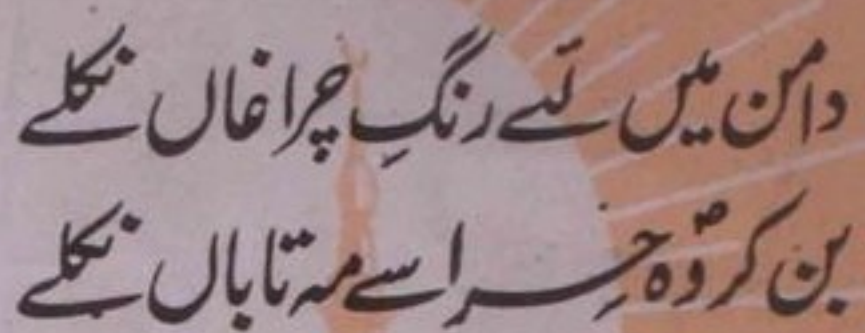 دامن میں لئے رنگِ چراغاں نکلے
بن کر وُہؐ حِرا سے مہ تاباں نکلے